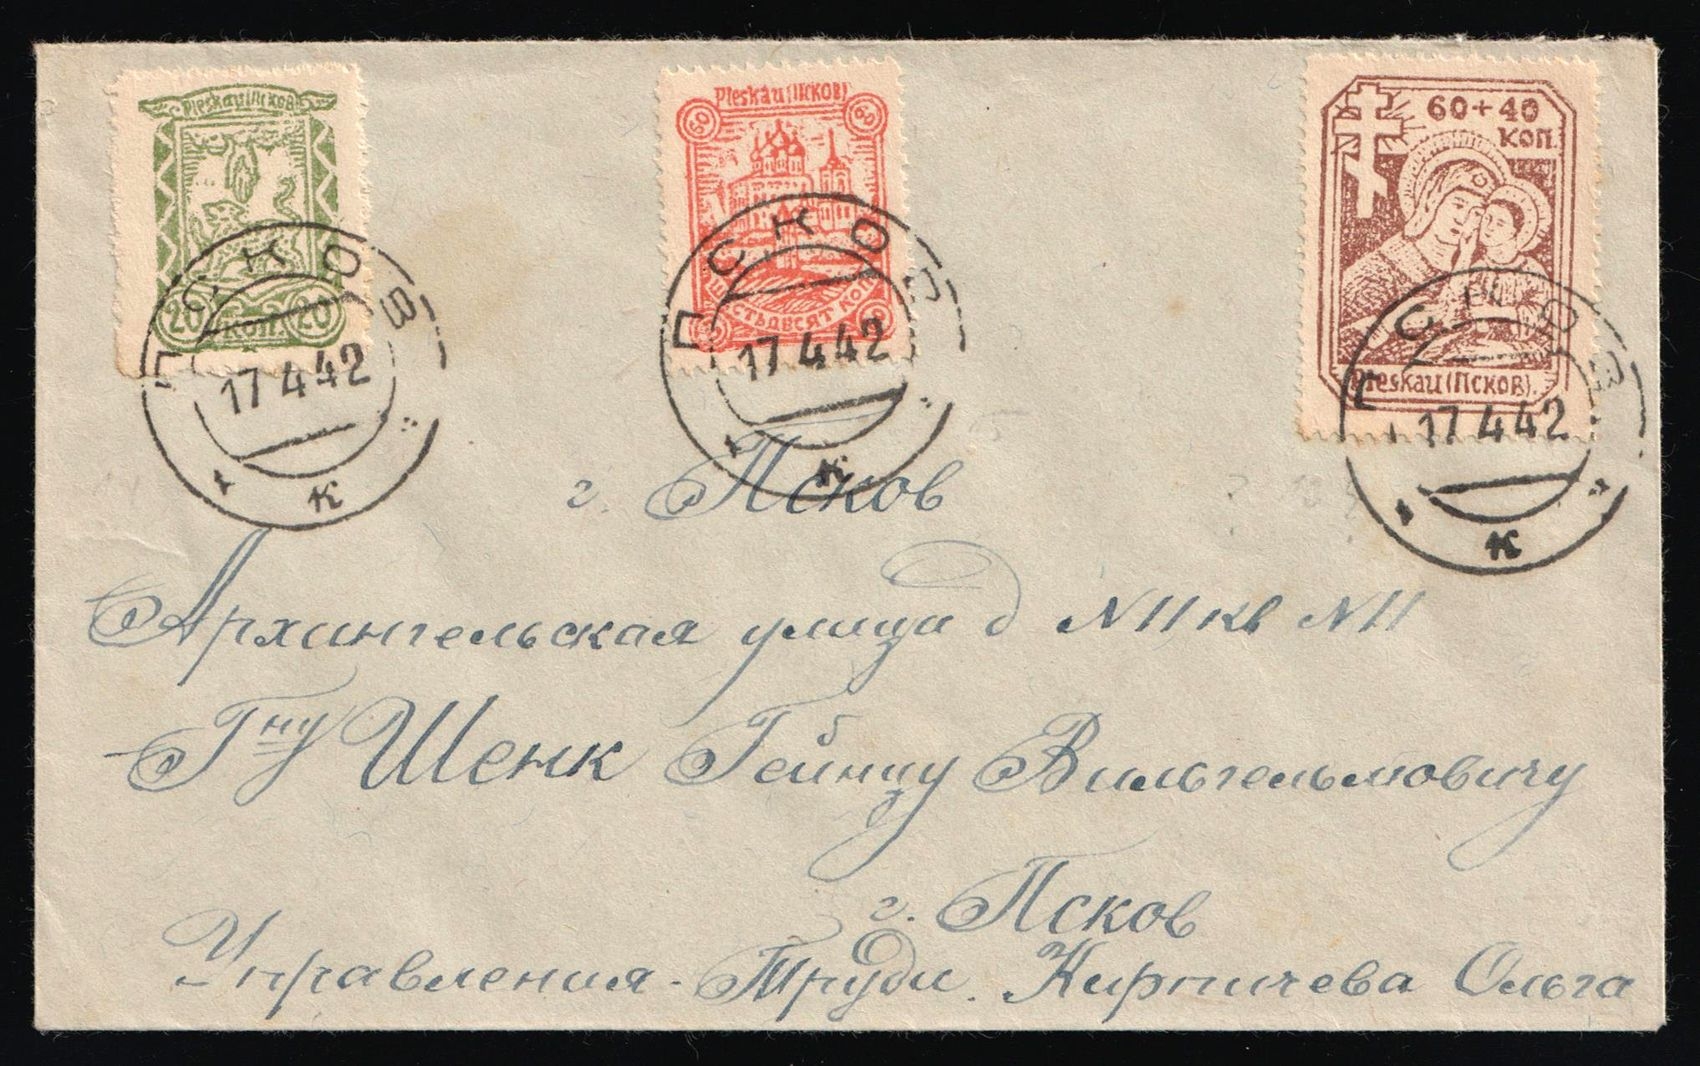 Pleskau (Псков)
20 КОП. 20
ПСКОВ
17 4 42
к
Pleskau (Псков)
60 60
ШЕСТЬДЕСЯТ КОП.
ПСКОВ
17 4 42
к
60 + 40
КОП.
Pleskau (Псков).
ПСКОВ
17 4 42
к
г. Псков
Архангельская улица д N 11 кв N 11
Гну Шенк Гейнцу Вильгельмовичу
г. Псков
Управления. Труда. Кирпичева Ольга